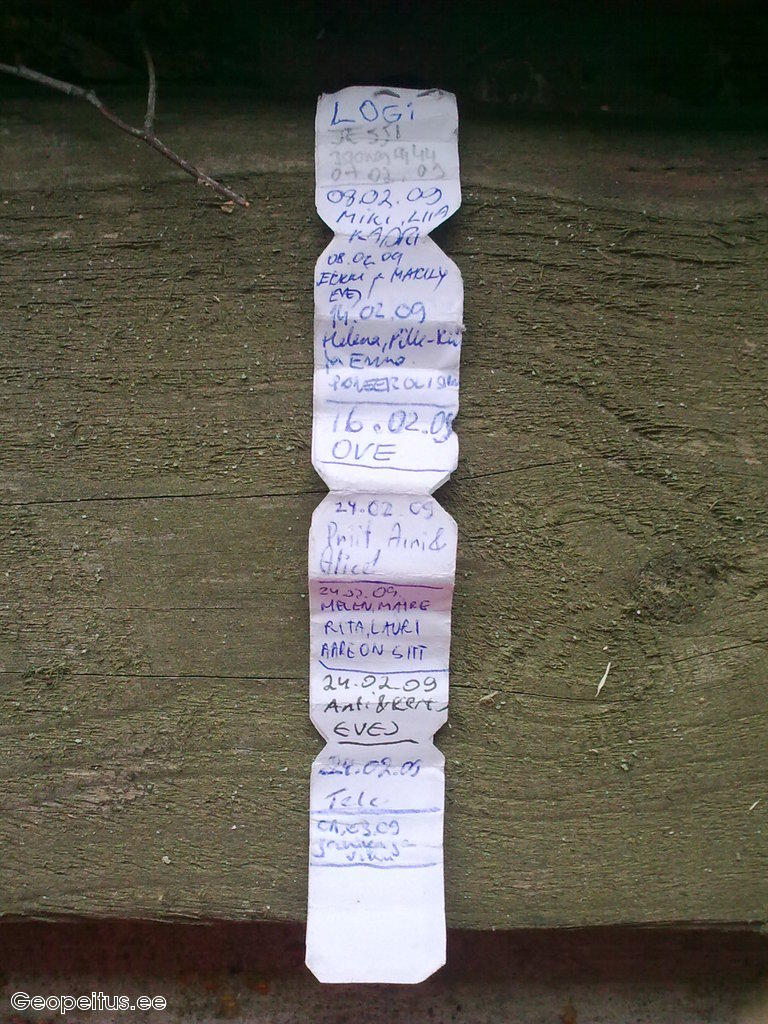 LOGi
JESSI
07.02.09
08.02.09
MIKI, LIIA
KADRI
08.02.09
MARILY
EVEJ
14.02.09
Helena, Pille-Rii
ja Enno
16.02.09
OVE
24.02.09
Priit, Aini &
Alice!
24.02.09
MELEN, MAIRE
RITA, LAURI
AARE ON SIIT
24.02.09
Anti & Kert
EVEJ
24.02.09
Tele
01.03.09
Geopeitus.ee